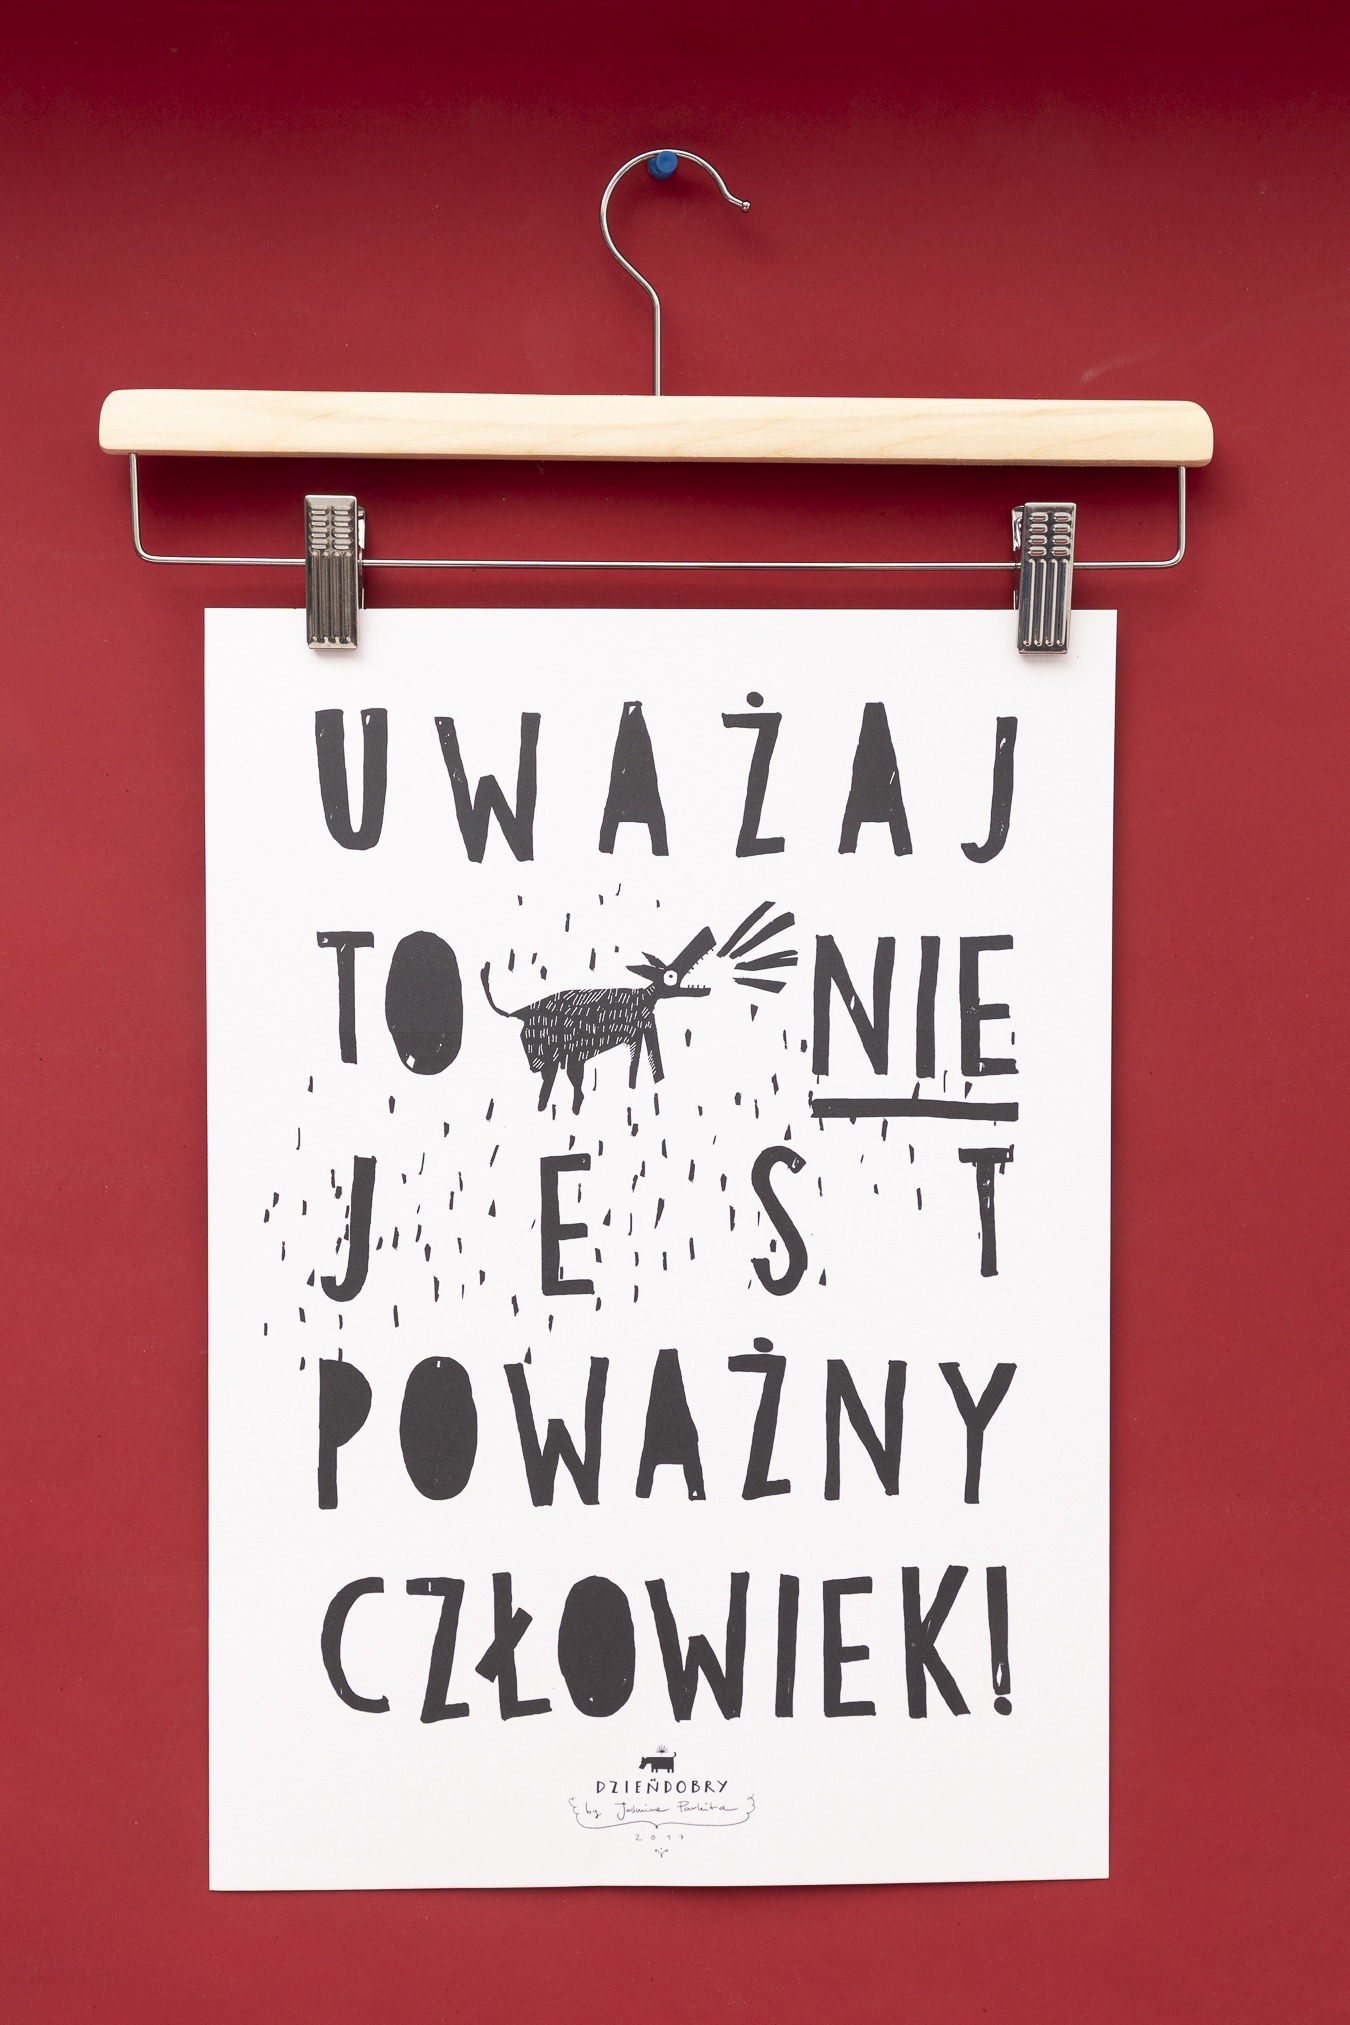 UWAŻAJ
TO NIE
JEST
POWAŻNY
CZŁOWIEK!
DZIEŃDOBRY
by
2017